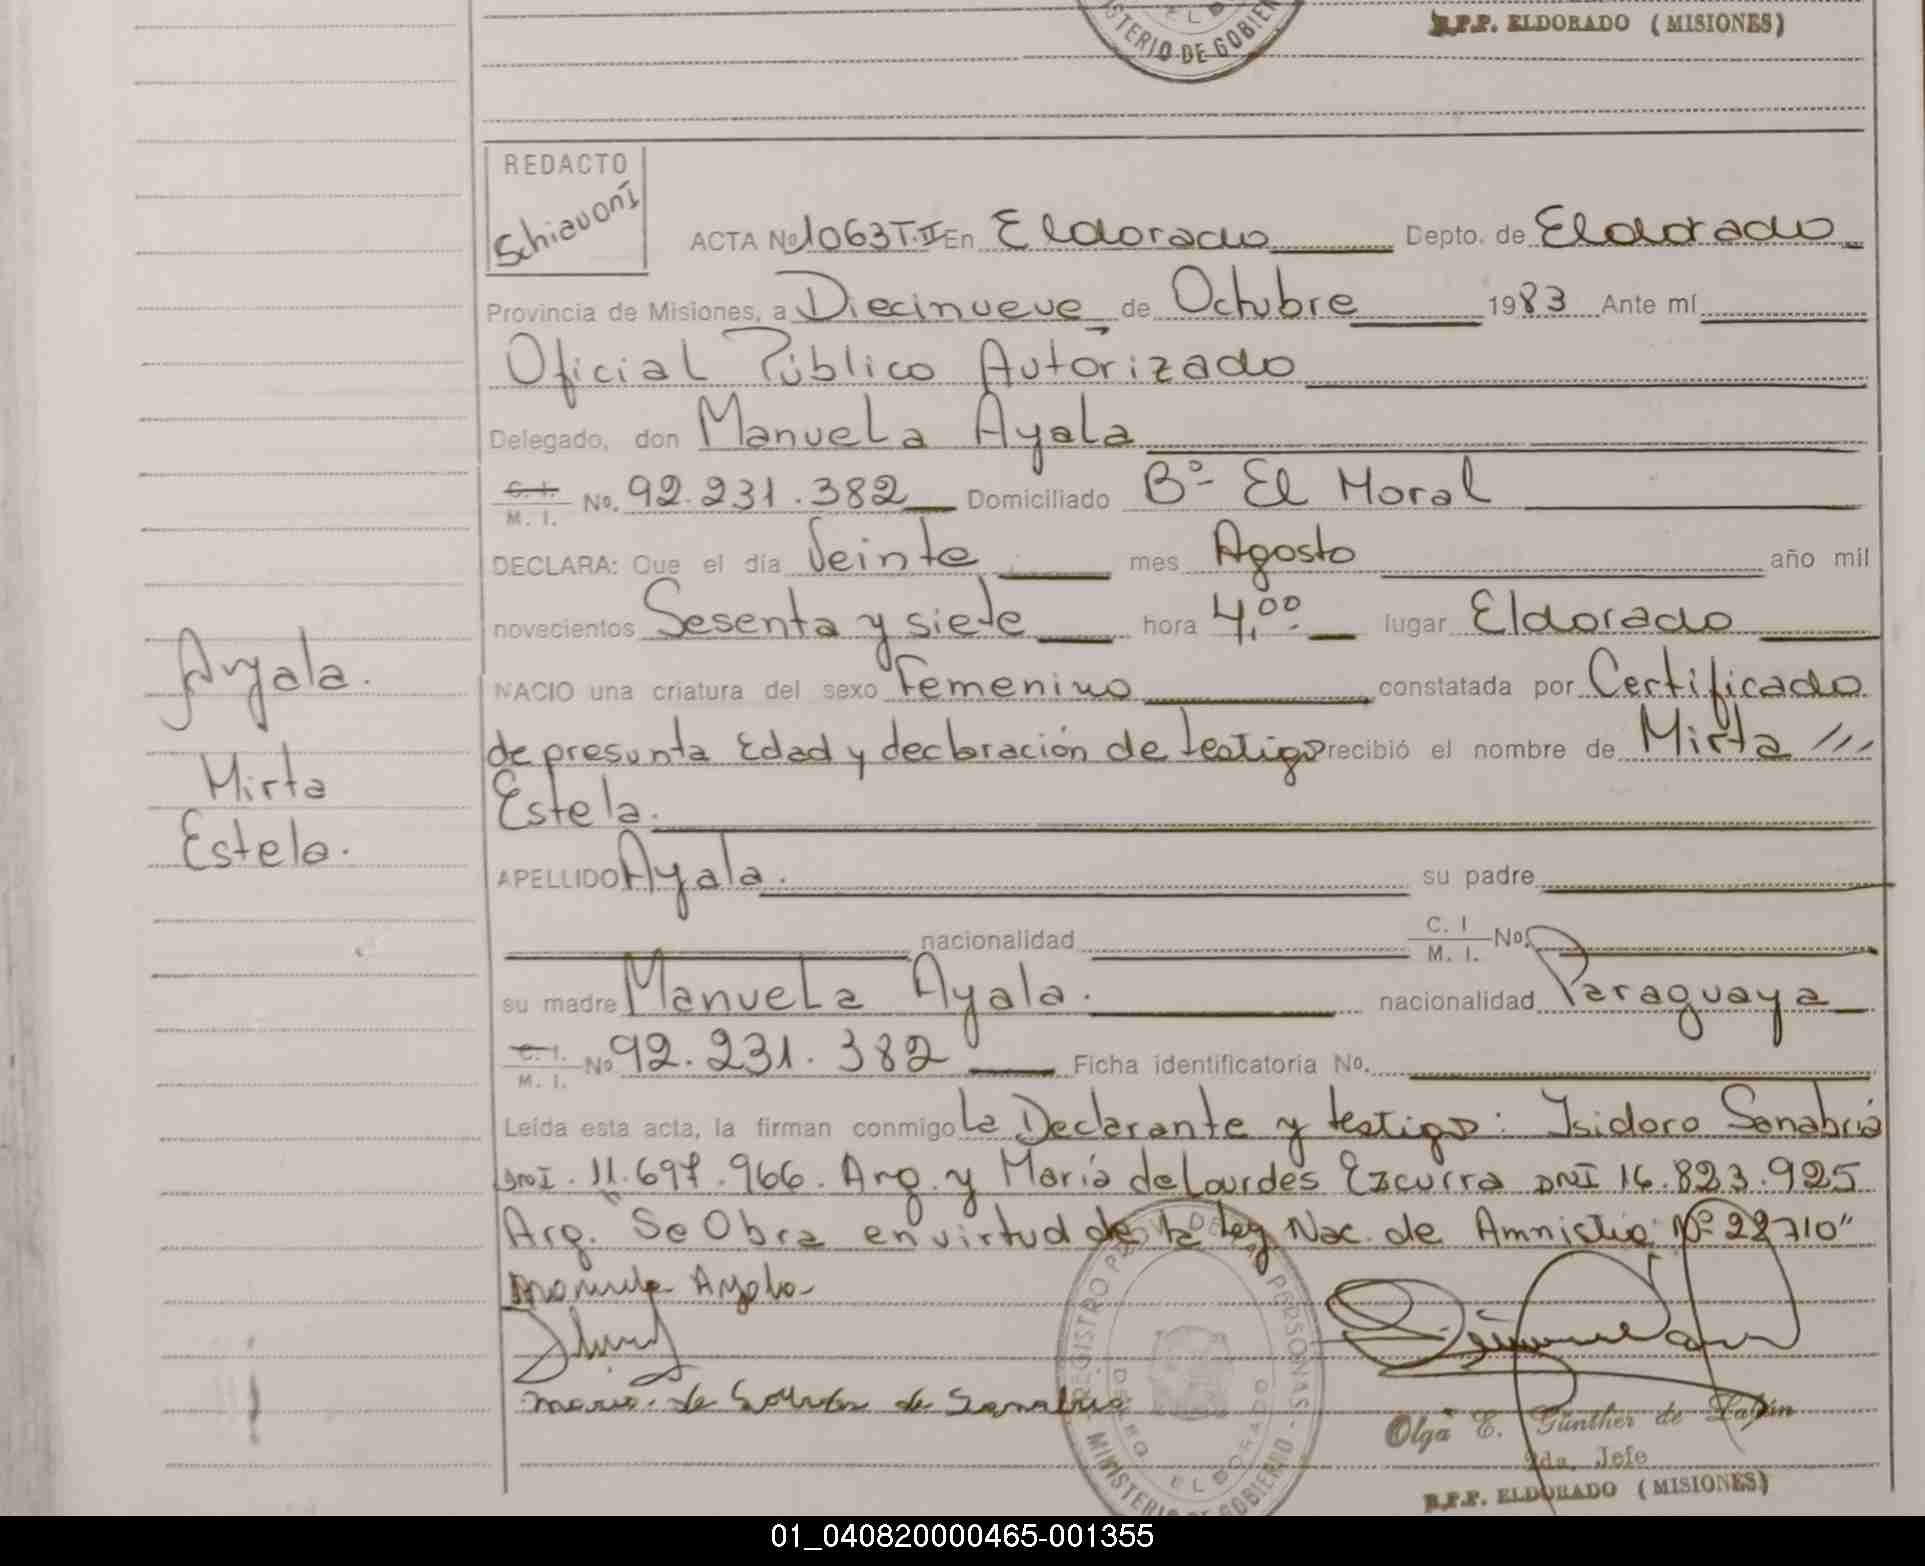 STERIO DE GOBIERN
R.P.P. ELDORADO (MISIONES)
REDACTO
Schiavoni
ACTA No 1063 T.II En Eldorado Depto. de Eldorado
Provincia de Misiones, a Diecinueve de Octubre 1983 Ante mí
Oficial Público Autorizado
Delegado, don Manuela Ayala
C. I. M. I. No. 92.231.382 Domiciliado Bº El Moral
DECLARA: Que el día Veinte mes Agosto año mil
novecientos Sesenta y siete hora 4,00 lugar Eldorado
NACIO una criatura del sexo Femenino constatada por Certificado
de presunta Edad y declaración de testigo recibió el nombre de Mirta ///
Estela.
APELLIDO Ayala. su padre
nacionalidad C. I M. I. No.
su madre Manuela Ayala. nacionalidad Paraguaya
C. I. M. I. No 92.231.382 Ficha identificatoria No.
Leída esta acta, la firman conmigo La Declarante y testigo: Isidoro Sanabria
DNI. 11.697.966. Arg. y María de Lourdes Ezcurra DNI 16.823.925
Arg. "Se Obra en virtud de la ley Nac. de Amnistia Nº 22710"
Manuela Ayala
Maria de Lourdes de Sanabria
Ayala.
Mirta
Estela.
REGISTRO PROV. DE LAS PERSONAS - MINISTERIO DE GOBIERNO
ELDORADO
Olga E. Günther de
2da. Jefe
R.P.P. ELDORADO (MISIONES)
01_040820000465-001355